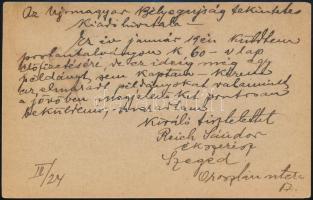 Az Uj magyar Bélyegujság tekintetes
Kiadóhivatala
Ez év január 19én küldtem
postautalványon K. 60 - a lap
előfizetésére, de ez ideig még egy
példányt, sem kaptam - Kérem
az elmaradt példányokat valamint
a jövőben megjelenőket pontosan
beküldeni, maradtam
Kiváló tisztelettel
Reich Sándor
ékszerész
Szeged
IV/24
Oroszlán utca